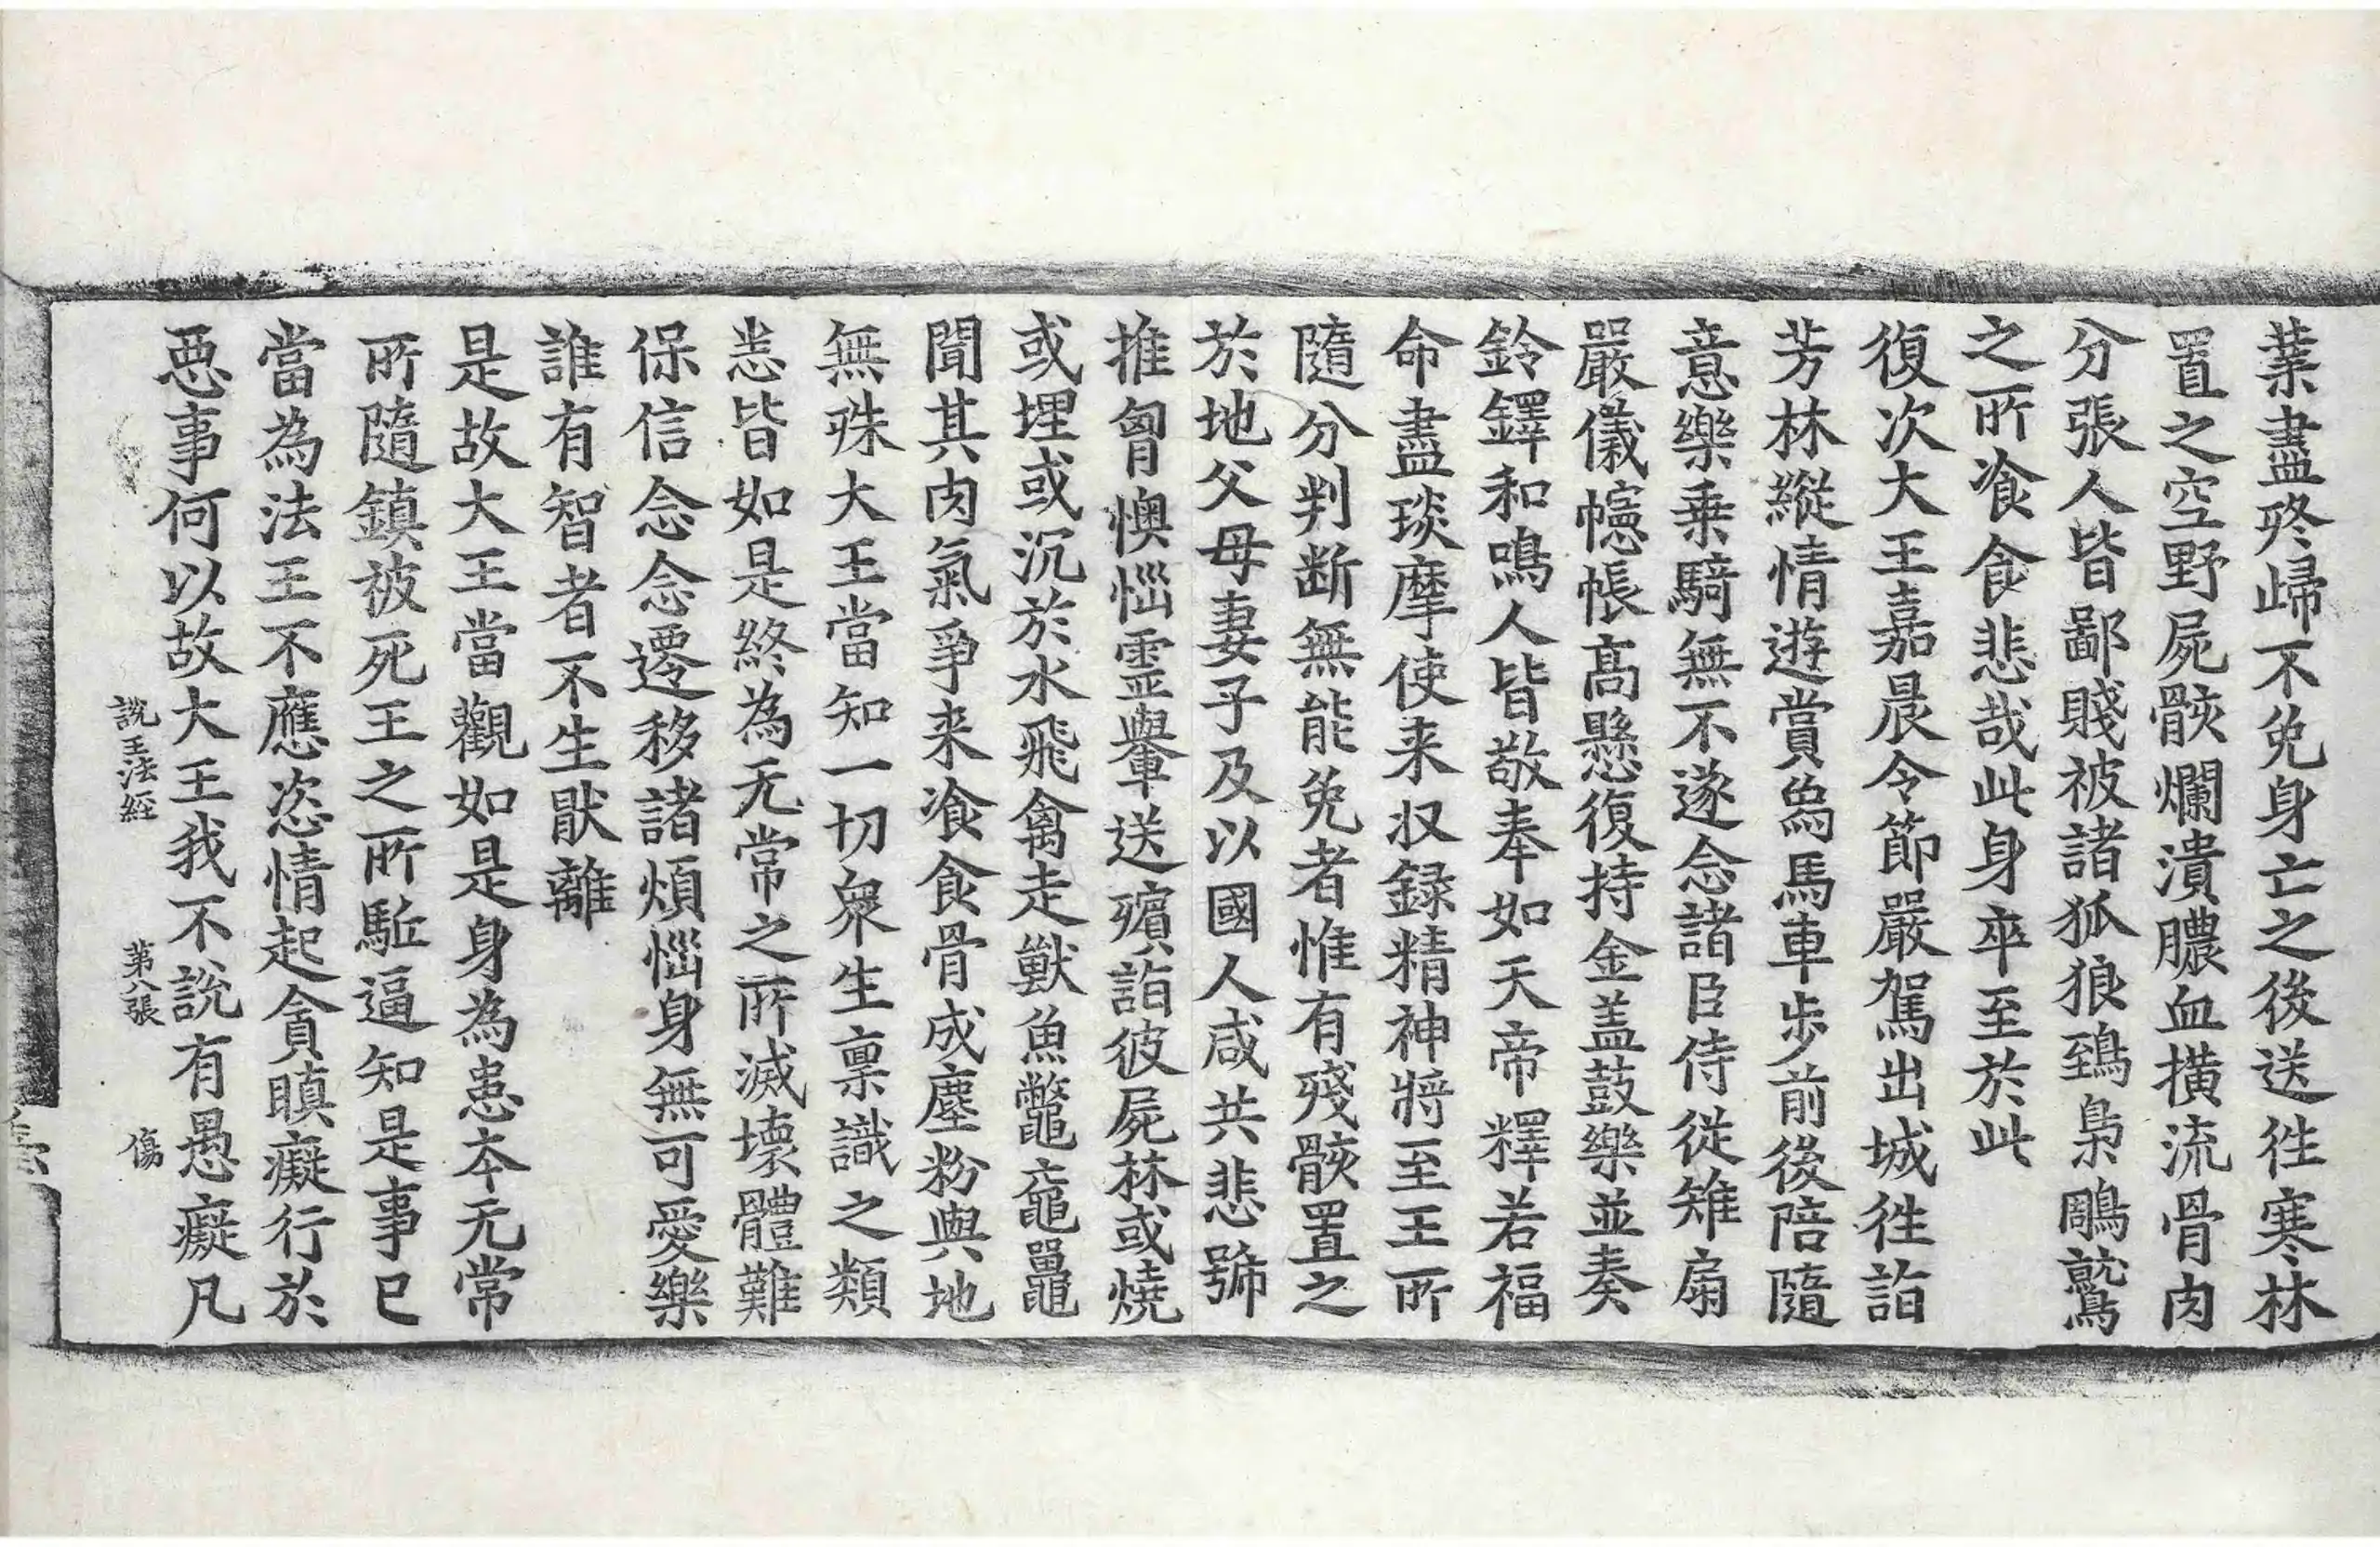 業盡終歸不免身亡之後送往寒林
置之空野屍骸爛潰膿血橫流骨肉
分張人皆鄙賤被諸狐狼鵄梟鵰鷲
之所飡食悲哉此身卒至於此
復次大王嘉晨令節嚴駕出城往詣
芳林縱情遊賞烏馬車步前後陪隨
意樂乗騎無不遂念諸臣侍從雉扇
嚴儀幰帳髙懸復持金盖鼓樂並奏
鈴鐸和鳴人皆敬奉如天帝釋若福
命盡琰摩使来収録精神將至王所
隨分判断無能免者惟有殘骸置之
於地父母妻子及以國人咸共悲號
推胷懊惱靈轝送殯詣彼屍林或燒
或埋或沉於水飛禽走獸魚鼈黿鼉
聞其肉氣爭来飡食骨成塵粉與地
無殊大王當知一切衆生禀識之類
恙皆如是終為无常之所滅壞體難
保信念念遷移諸煩惱身無可愛樂
誰有智者不生猒離
是故大王當觀如是身為患本无常
所隨鎮被死王之所駈逼知是事巳
當為法王不應恣情起貪瞋癡行於
惡事何以故大王我不說有愚癡凡
說王法經 第八張 傷